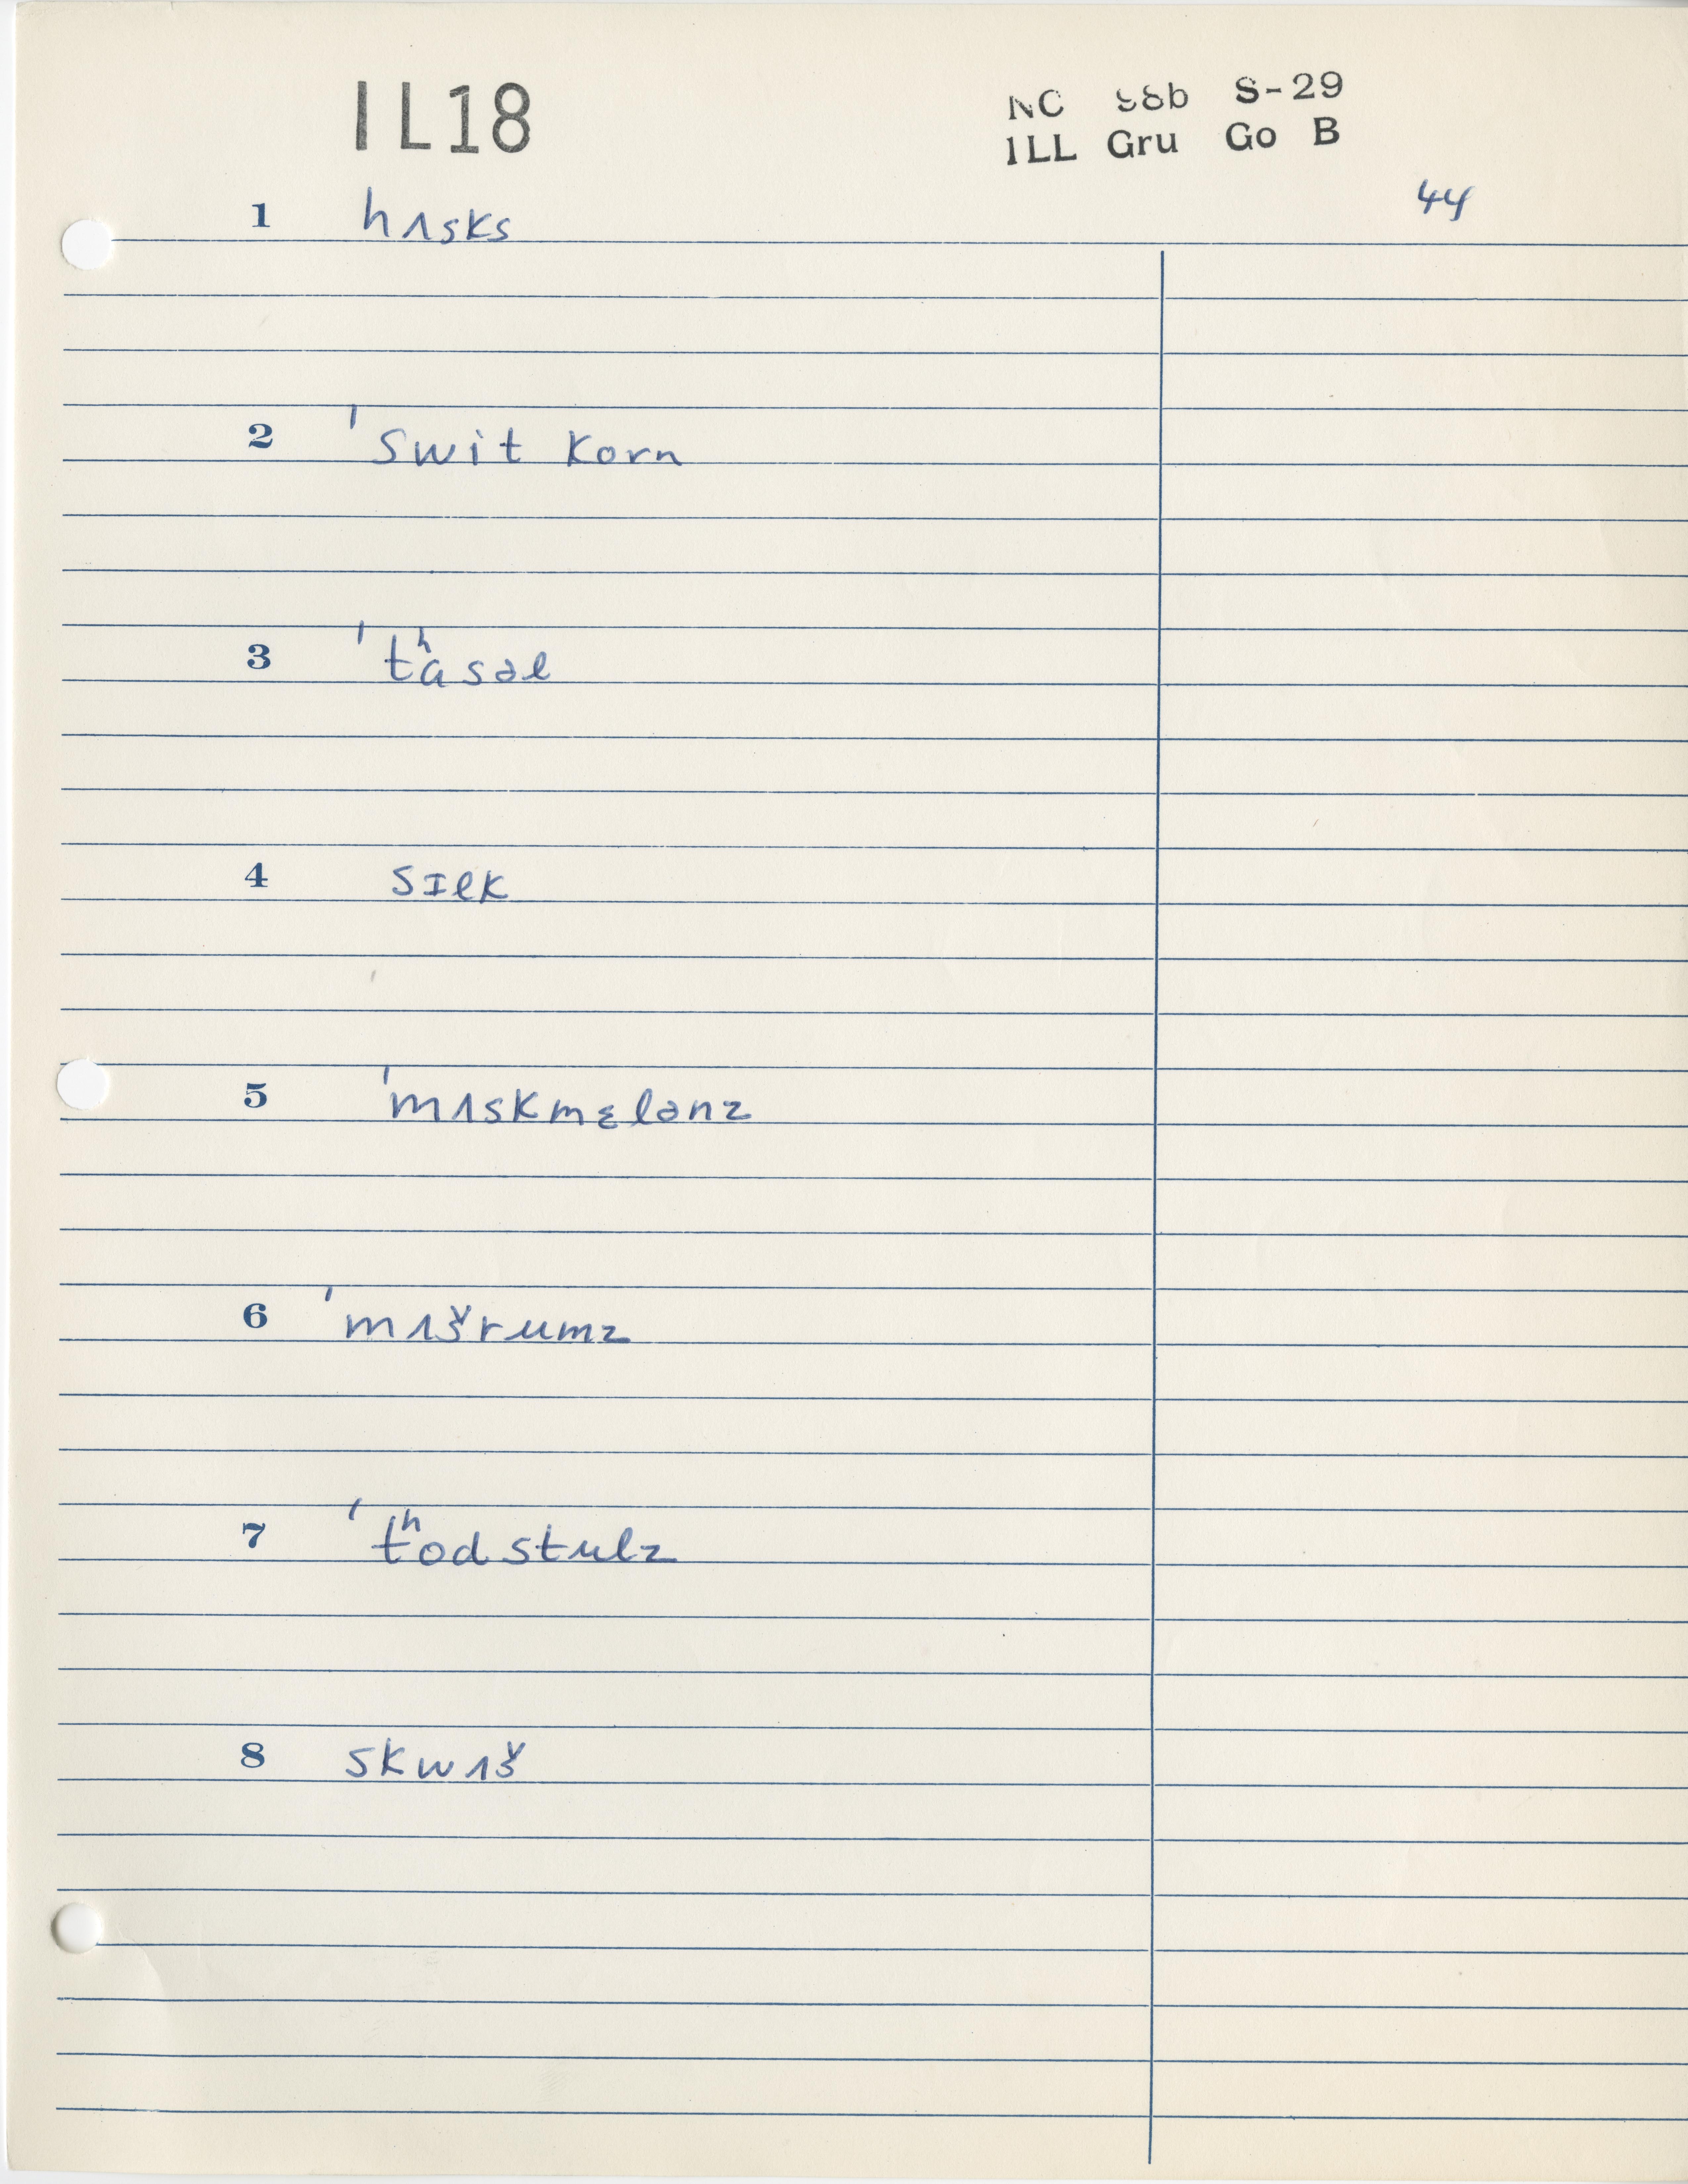 IL18
NC S-29
ILL Gru Go B
44
1 hʌsks
2 ˈswit korn
3 ˈtʰasəl
4 sɪlk
5 ˈmʌskmɛlənz
6 ˈmʌšrumz
7 ˈtʰodstulz
8 skwʌš